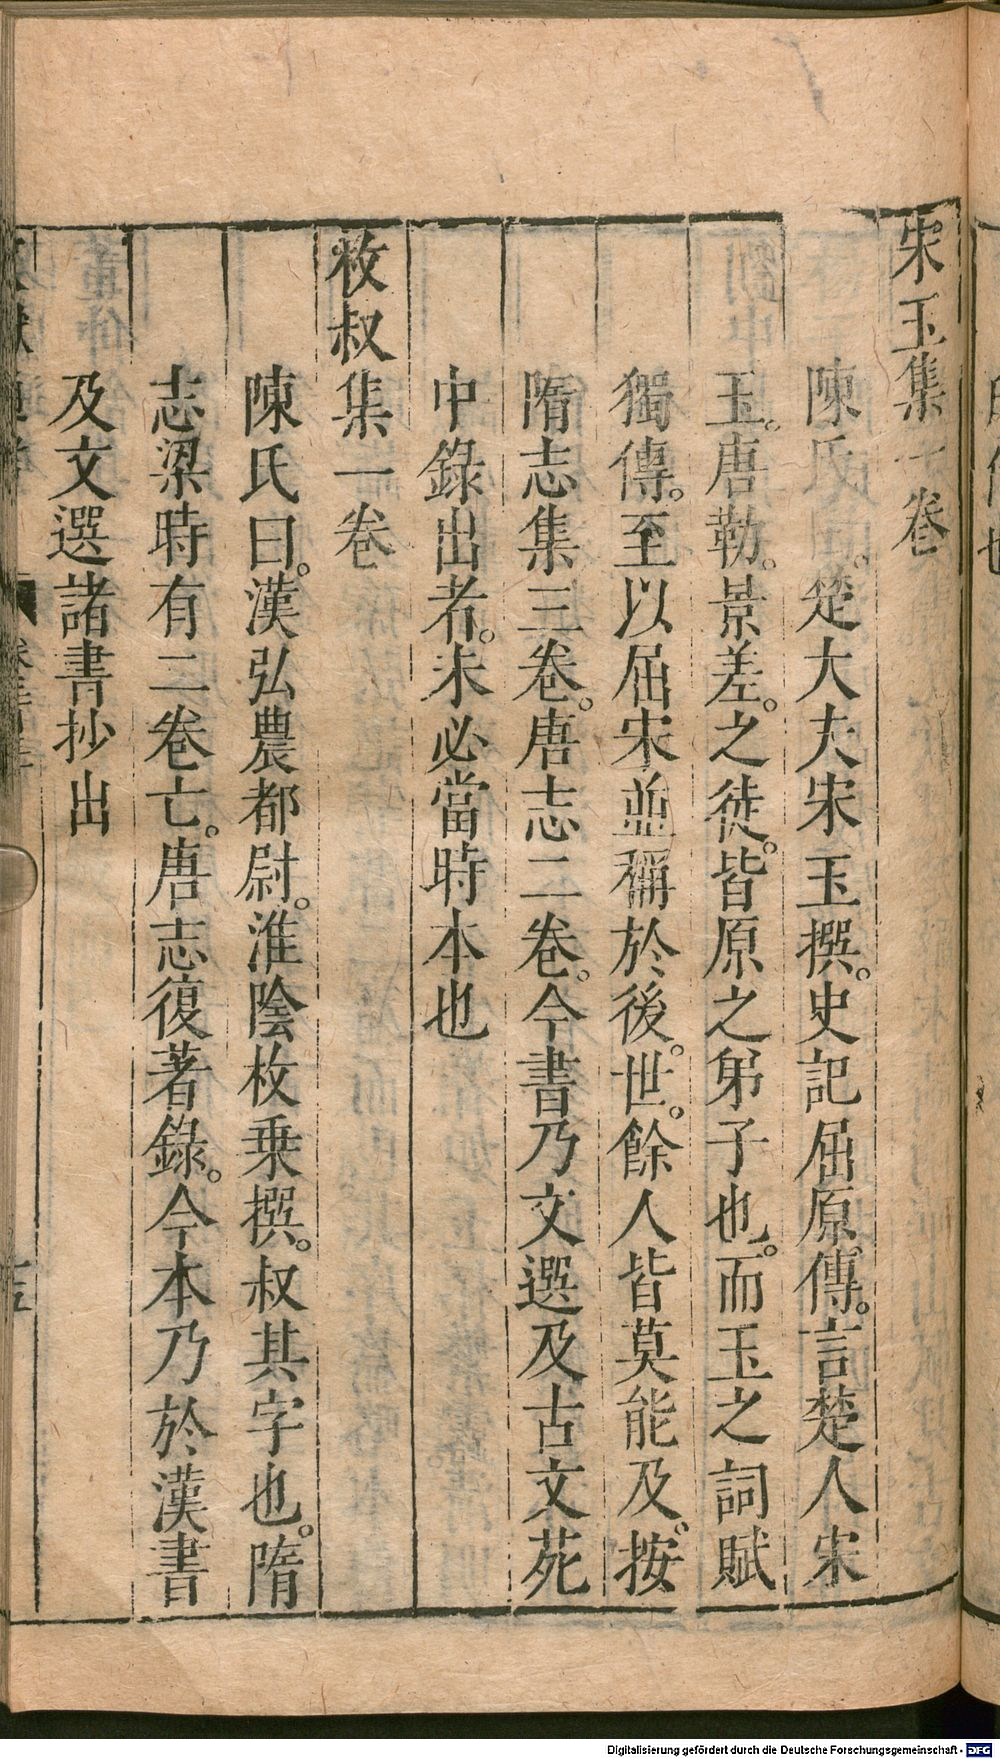 宋玉集一卷
陳氏曰。楚大夫宋玉撰。史記屈原傳。言楚人宋
玉。唐勒。景差。之徒。皆原之弟子也。而玉之詞賦
獨傳。至以屈宋並稱於後。世。餘人皆莫能及。按
隋志集三卷。唐志二卷。今書乃文選及古文苑
中錄出者。未必當時本也
枚叔集一卷
陳氏曰。漢弘農都尉。淮陰枚乘撰。叔其字也。隋
志梁時有二卷亡。唐志復著錄。今本乃於漢書
及文選諸書抄出
Digitalisierung gefördert durch die Deutsche Forschungsgemeinschaft - DFG